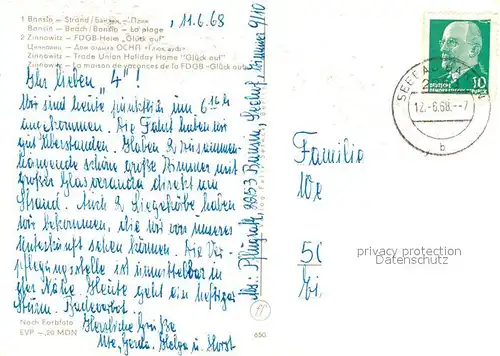 , 11.6.68
1 Bansin – Strand / Банзин – Пляж
Bansin – Beach / Bansin – La plage
2 Zinnowitz – FDGB-Heim „Glück auf“
Zinnowitz – Trade Union Holiday Home "Glück auf"
Zinnowitz – La maison de vacances de la FDGB „Glück auf“
Ihr lieben „4“!
Wir sind heute pünktlich um 6 16 h
angekommen. Die Fahrt haben wir
gut überstanden. Haben 2 zusammen-
hängende schöne große Zimmer mit
großer Glasveranda direkt am
Strand. Auch 2 Liegekörbe haben
wir bekommen, die wir von unserer
Unterkunft sehen können. Die Ver-
pflegungsstelle ist unmittelbar in
der Nähe. Heute geht ein heftiger
Sturm. Badeverbot.
Herzliche Grüße
Ute, Gerda, Helga u. Horst
Nach Farbfoto
EVP –,20 MDN
650
Abs.: Pflugrath 2253 Bansin, Seehof, Zimmer 9/10
12.-6.68.--7
b
10
Familie
privacy protection
Datenschutz